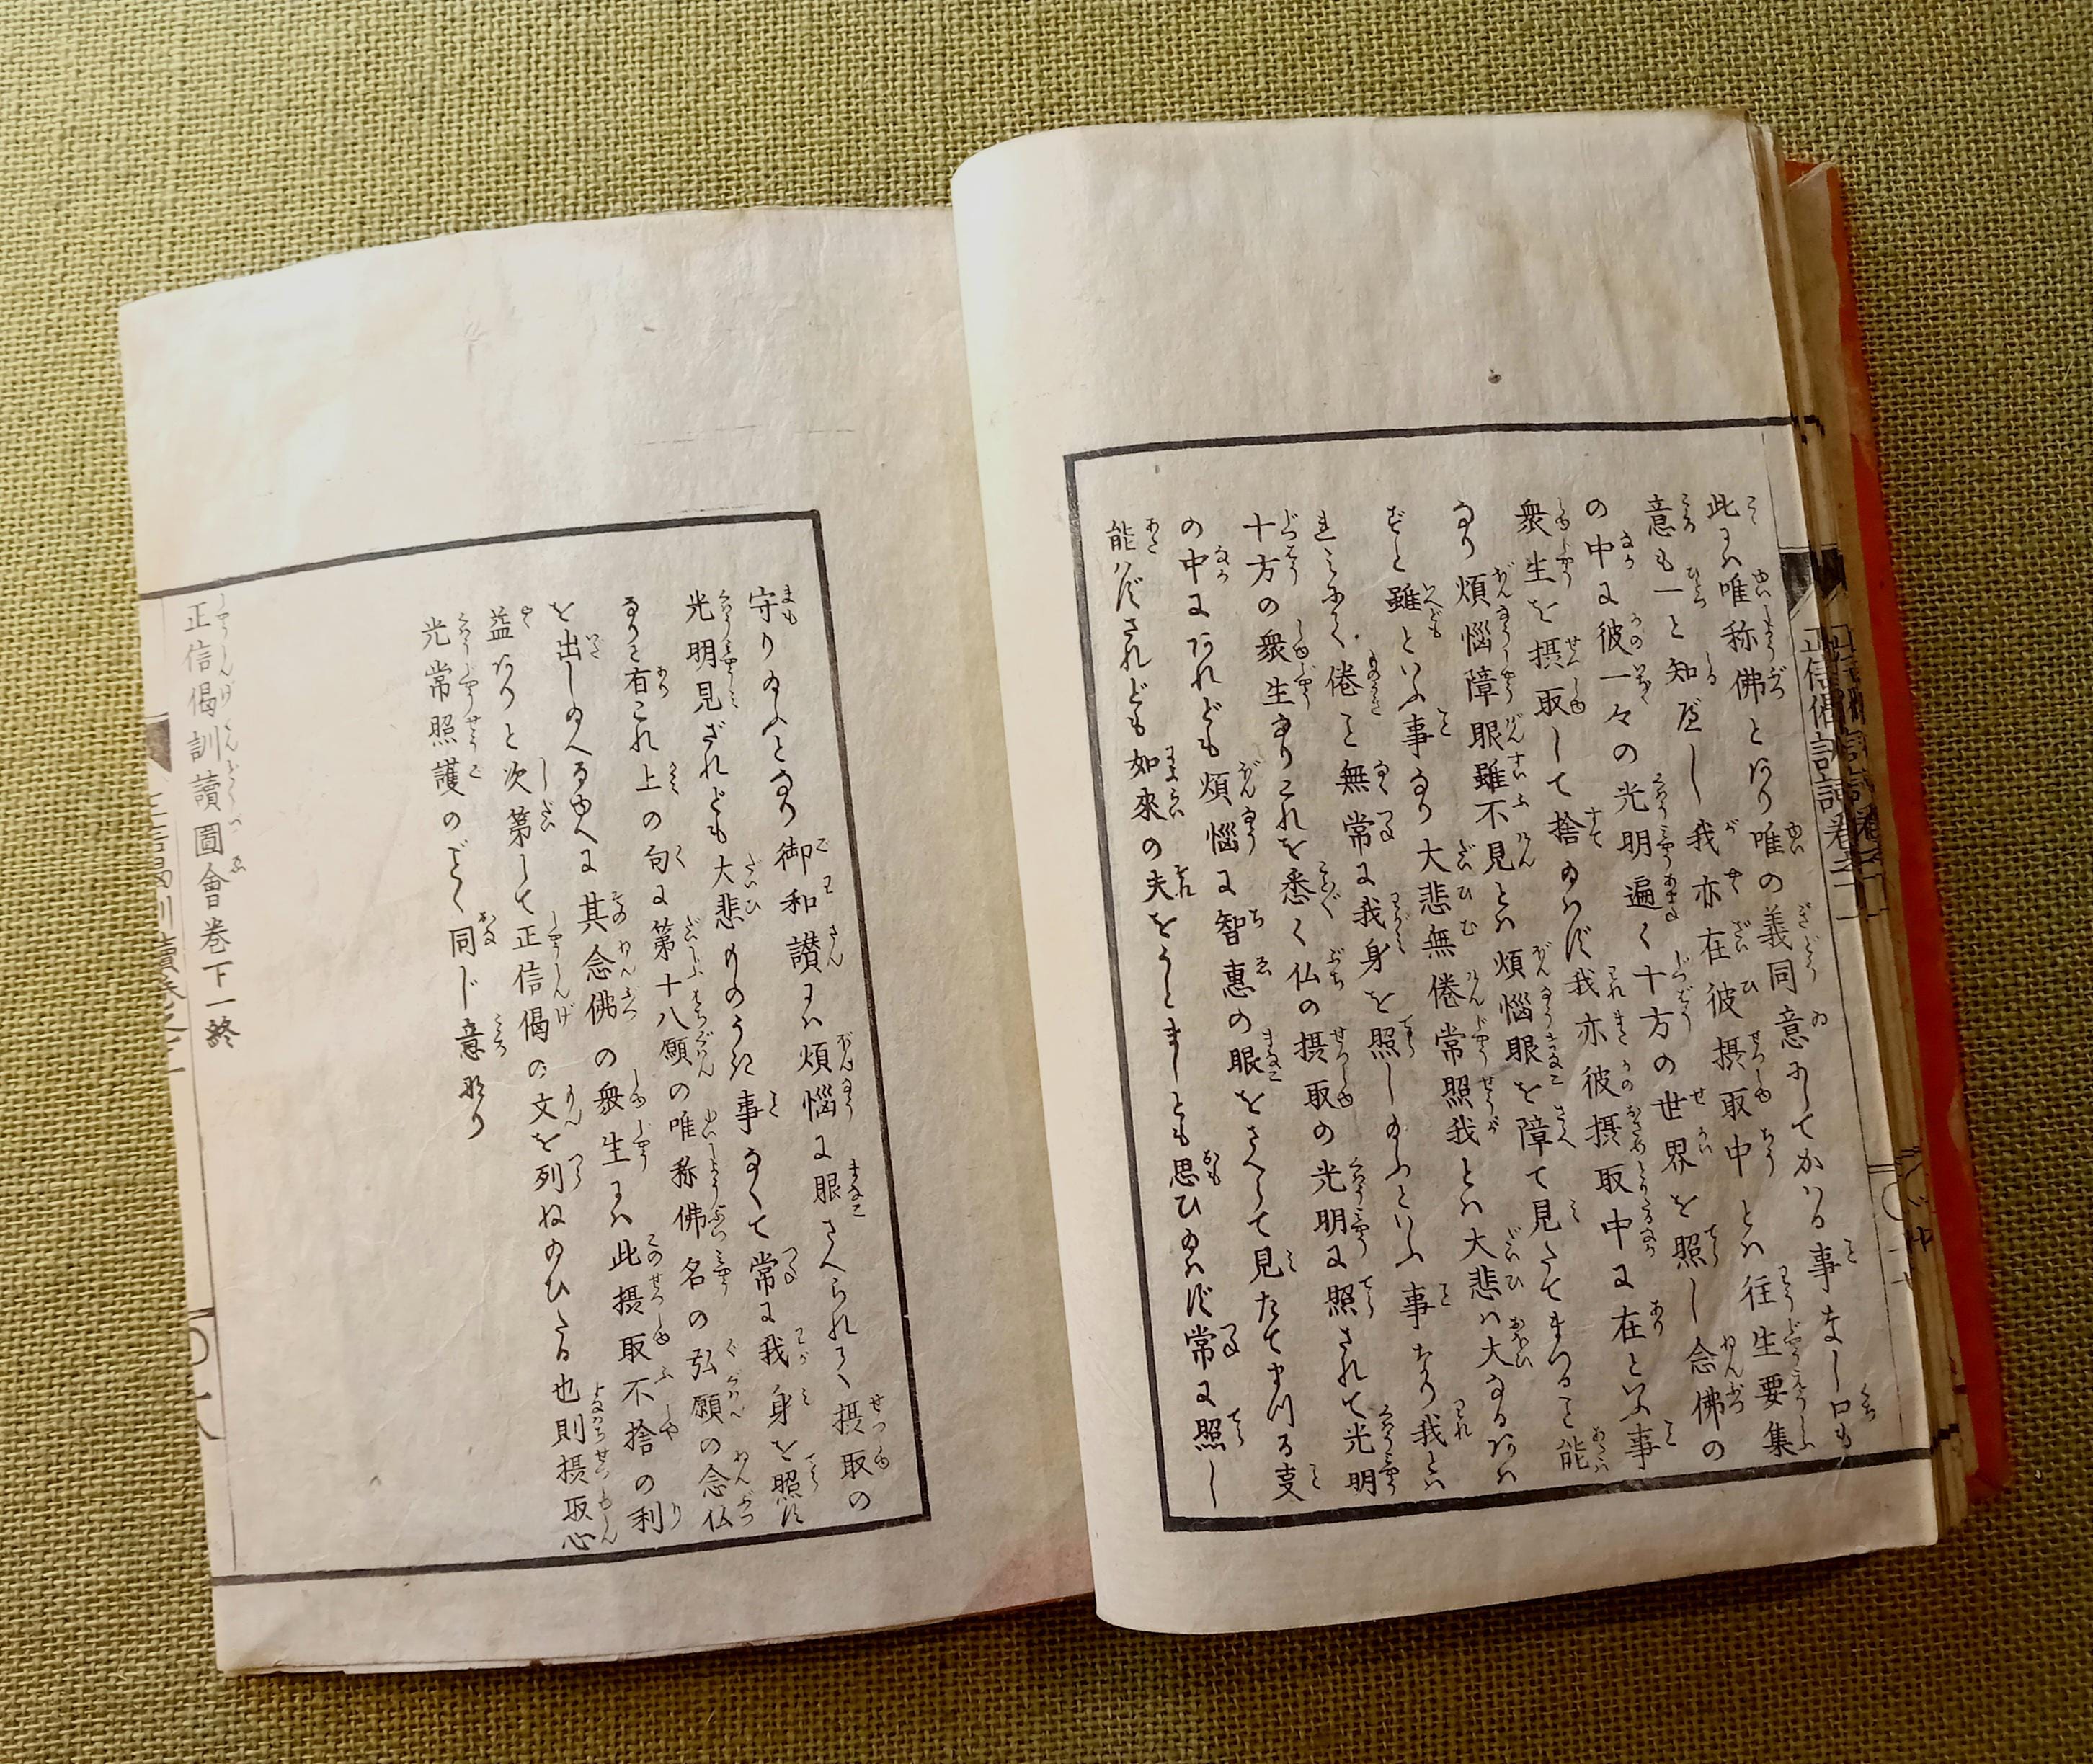 此には唯称佛とあり唯の義同意にしてかはる事なし口も
意も一と知べし我亦在彼摂取中とは往生要集
の中に彼一々の光明遍く十方の世界を照し念佛の
衆生を摂取して捨給はず我亦彼摂取中に在といふ事
なり煩悩障眼雖不見とは煩悩眼を障て見たてまつること能
ずと雖といふ事なり大悲無倦常照我とは大悲は大なるあは
れみなく倦こと無常に我身を照し給ふといふ事なり我とは
十方の衆生なりこれを悉く仏の摂取の光明に照されて光明
の中にあれども煩悩に智惠の眼をさへて見たてまつる支
能はずされども如來の夫をうとましとも思ひ給はず常に照し
守り給ふとなり御和讃には煩悩に眼さへられて摂取の
光明見ざれども大悲ものうき事なくて常に我身を照す
なりと有これ上の句に第十八願の唯称佛名の弘願の念仏
を出し給へるゆへに其念佛の衆生には此摂取不捨の利
益ありと次第して正信偈の文を列ね給ひたる也則摂取心
光常照護のごく同じ意なり
正信偈訓讀圖會巻下一終